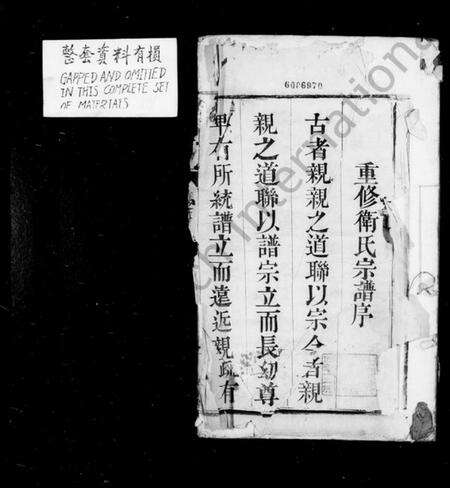 整套資料有損
GAPPED AND OMITTED
IN THIS COMPLETE SET
OF MATERIALS
6086970
重修衛氏宗譜序
古者親親之道聯以宗今者親
親之道聯以譜宗立而長幼尊
卑有所統譜立而遠近親疏有
International